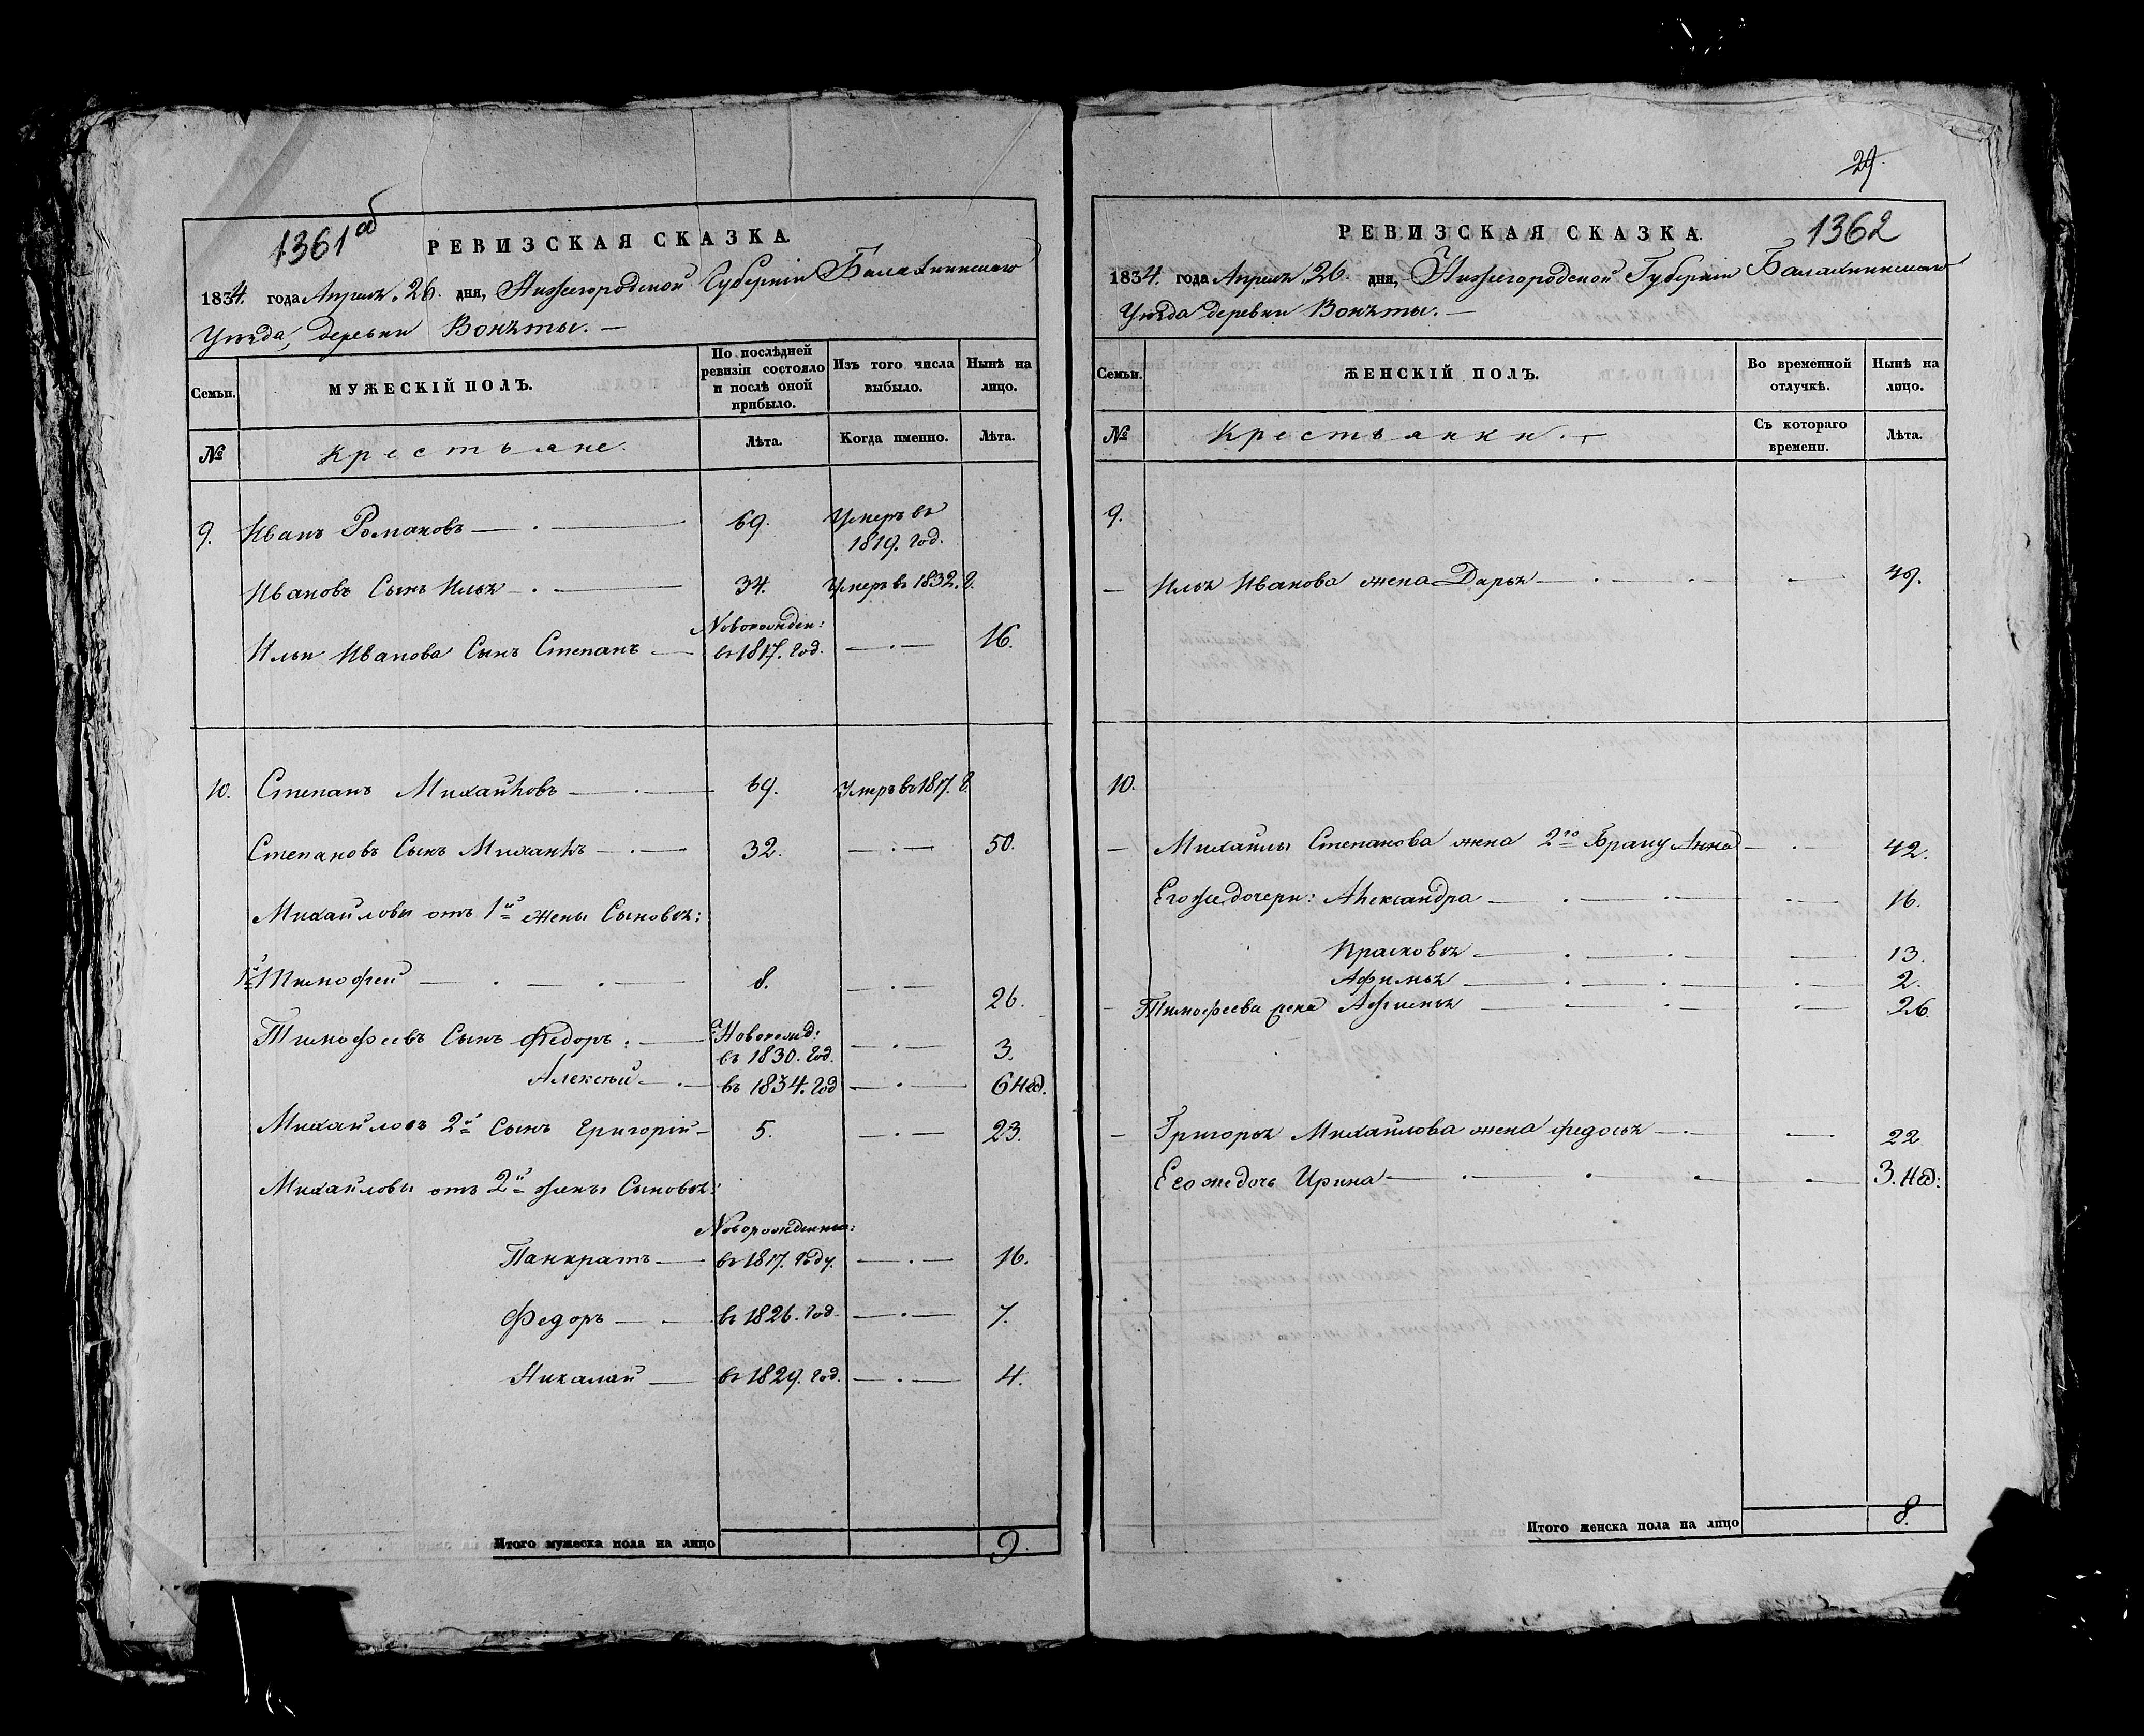 1361об
РЕВИЗСКАЯ СКАЗКА.
1834. года Апреля 26. дня, Нижегородской Губернiи Балахнинскаго
Уѣзда, деревни Вонѣты. —
Семьи.
МУЖЕСКIЙ ПОЛЪ.
По послѣдней ревизiи состояло и послѣ оной прибыло.
Изъ того числа выбыло.
Нынѣ на лицо.
№
Крестьяне.
Лѣта.
Когда именно.
Лѣта.
9. Иванъ Романовъ — . — 69. Умеръ въ 1819. год.
Ивановъ Сынъ Илья — . — 34. Умеръ в 1832. г.
Ильи Иванова Сынъ Степанъ — Новорожден: въ 1817. год. — . — 16.
10. Степанъ Михайловъ — . — 69. Умръ в 1817. г.
Степановъ Сынъ Михаила — . — 32. — . — 50.
Михайловы отъ 1й жены Сыновья:
1й Тимофей — . — . — 8. — . — 26.
Тимофеевъ Сынъ Федоръ: — Новорожд: въ 1830. год. — . — 3.
Алексѣй — . — въ 1834. год — . — 6 Нед.
Михайловъ 2й Сынъ Григорiй — 5. — . — 23.
Михайловы отъ 2й жены Сыновья:
Новорожденные:
Панкратъ — въ 1817. Году. — . — 16.
Федоръ — въ 1826. год. — . — 7.
Никалай — въ 1829. год. — . — 4.
Итого мужеска пола на лицо 9.
29
РЕВИЗСКАЯ СКАЗКА.
1362
1834. года Апреля 26. дня, Нижегородской Губернiи Балахнинскаго
Уѣзда деревни Вонѣты. —
Семьи.
ЖЕНСКIЙ ПОЛЪ.
Во временной отлучкѣ.
Нынѣ на лицо.
№
Крестьянки. —
Съ котораго времени.
Лѣта.
9.
— Ильи Иванова жена Дарья — . — . — —
10.
— Михайлы Степанова жена 2го Браку Анна — . — 42.
Его же дочери: Александра — . — . — 16.
Прасковья — . — . — 13.
Афимья — . — . — 2.
— Тимофеева жена Афимья — . — . — 26.
— Григорья Михайлова жена Федосья — . — 22
Его же дочь Ирина — . — . — 3. Нед:
Итого женска пола на лицо 8.